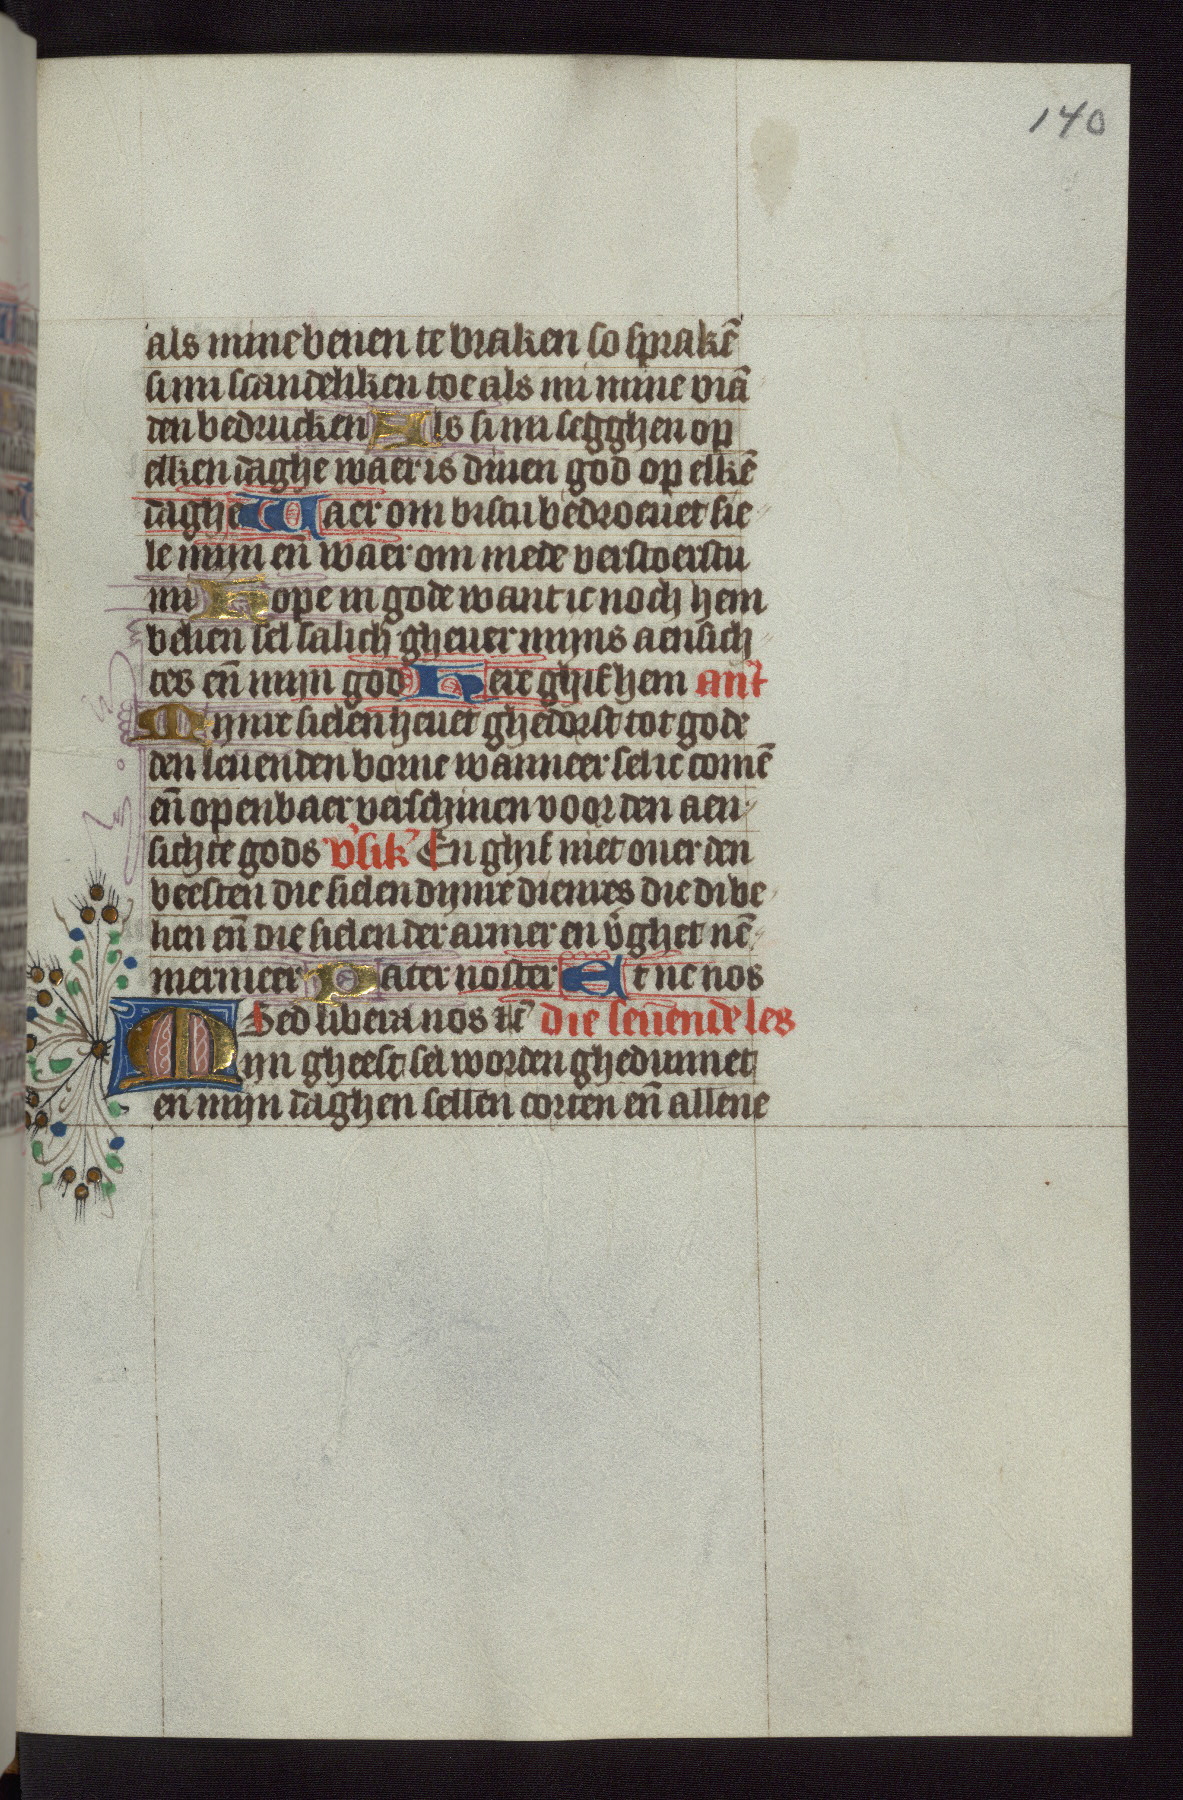 140
als mine benen te braken so sprakē
si mi scandeliken toe als mi mine viā
den bedrucken Als si mi segghen op
elken daghe waer is dinen god op elkē
daghe Waer om bistu bedroeuet sie
le mijn eñ waer om mede verstoerstu
mi Hope in gode want ic noch hem
belien sel salich gheuer mijns aensich
tes eñ mijn god Here ghif hem ant
Mijnre sielen heuet ghedorst tot gode
den leuenden borne wanneer sel ic comē
eñ openbaer verschinen voor den aen
sichte gods v̾sik̾ En ghif niet ouer den
beesten die sielen dijnre dienres die di be
lien eñ die sielen der armer en v̾ghet nē
mermeer Pater noster Et ne nos
Sed libera nos &c̄ die seuende les
Mijn gheest sel worden ghedunnet
eñ mijn daghen sellen corten eñ allene